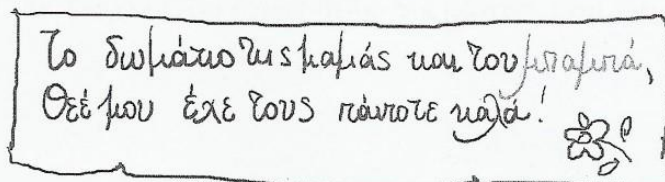 Το δωμάτιο της μαμάς και του μπαμπά,
Θεέ μου έχε τους πάντοτε καλά!